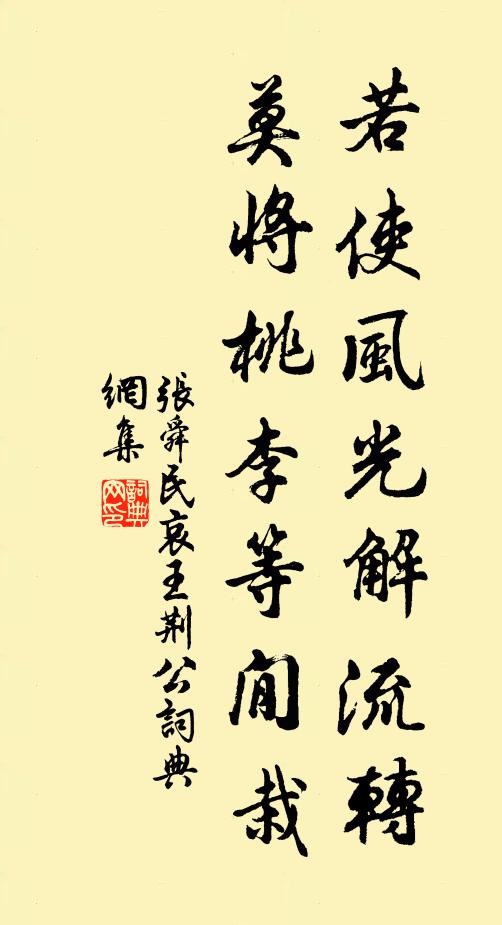 若使風光解流轉
莫將桃李等閒栽
張舜民哀王荆公詞典
網集
詞典
网印